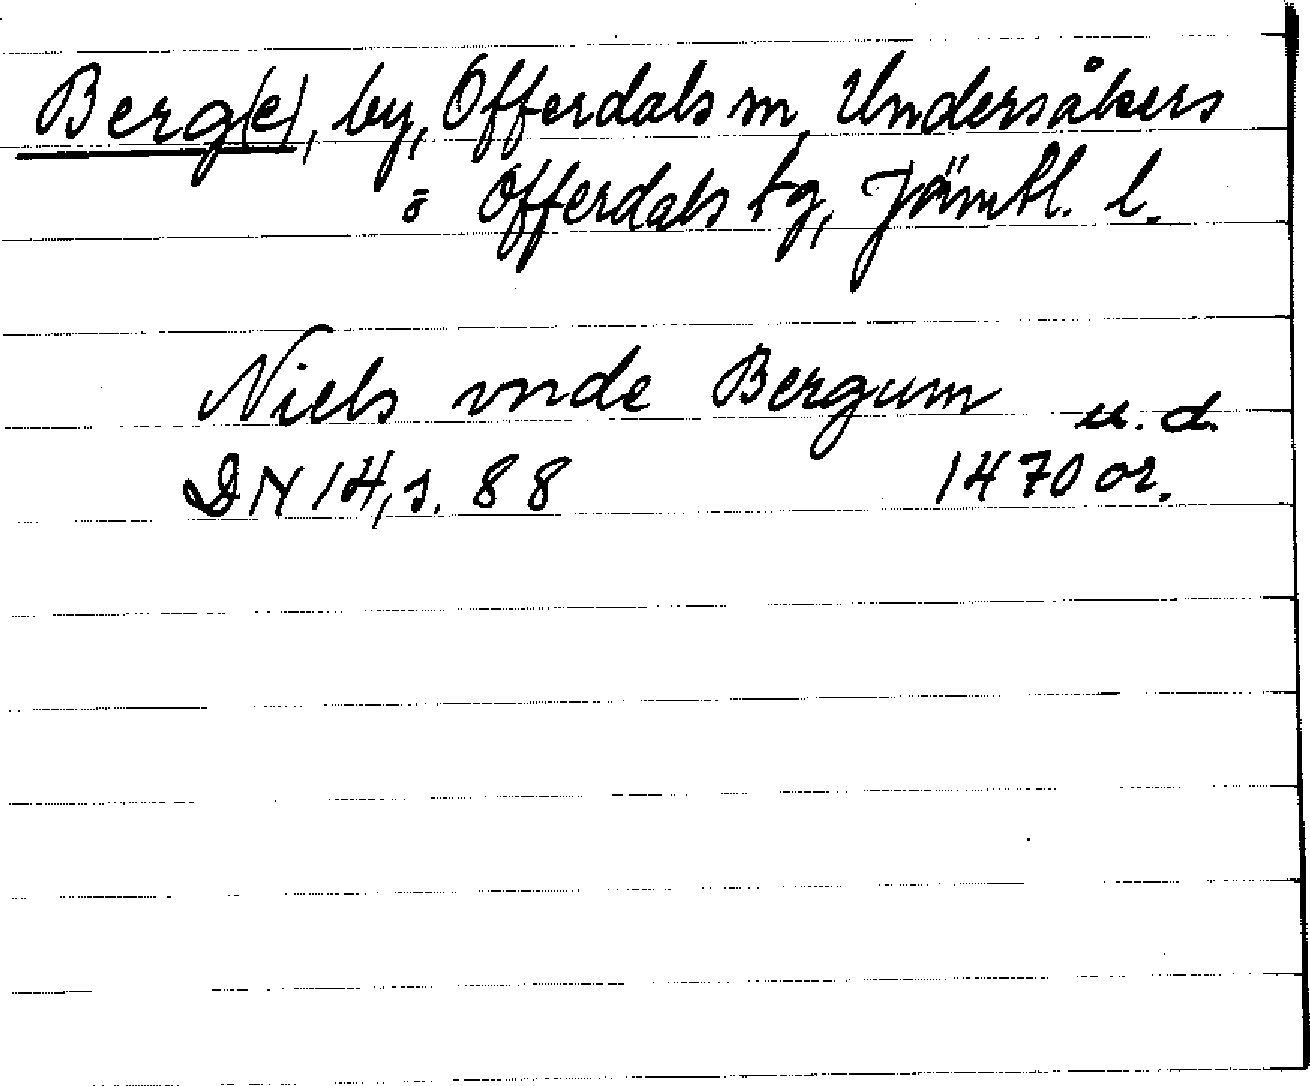 Berg(e), by, Offerdals sn, Undersåkers
o Offerdals tg, Jämtl. l.
Niels vnde Bergum u. d.
DN 14, s. 88 1470 or.